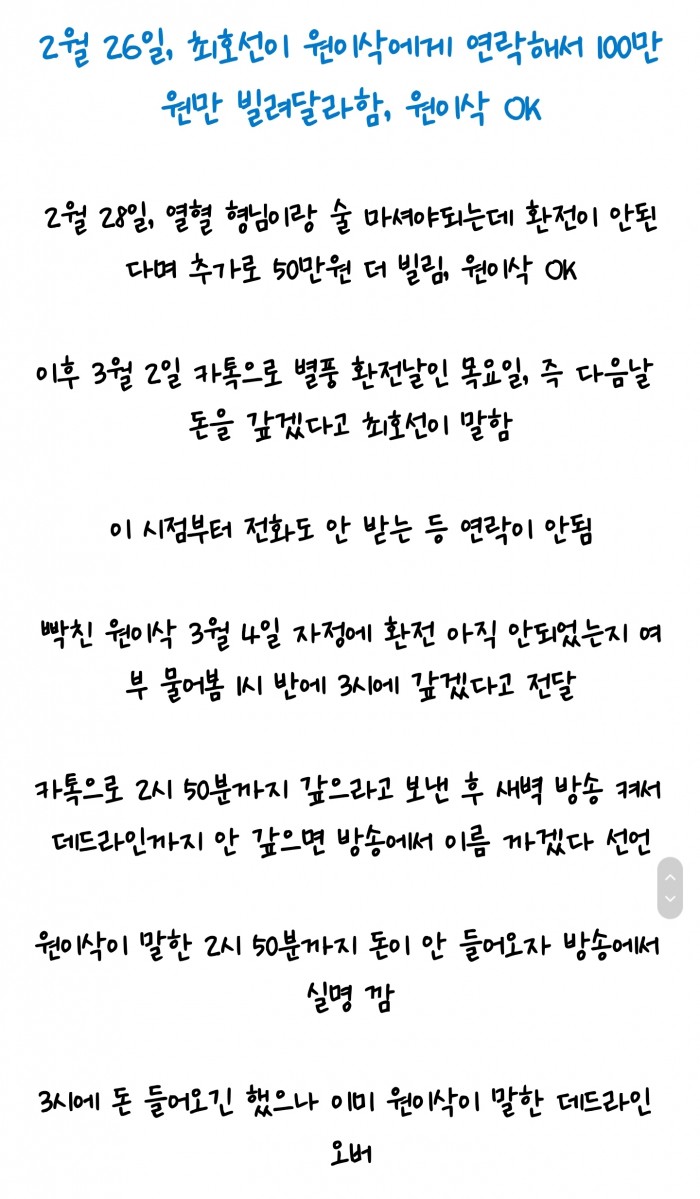 2월 26일, 최호선이 원이삭에게 연락해서 100만
원만 빌려달라함, 원이삭 OK
2월 28일, 열혈 형님이랑 술 마셔야되는데 환전이 안된
다며 추가로 50만원 더 빌림, 원이삭 OK
이후 3월 2일 카톡으로 별풍 환전날인 목요일, 즉 다음날
돈을 갚겠다고 최호선이 말함
이 시점부터 전화도 안 받는 등 연락이 안됨
빡친 원이삭 3월 4일 자정에 환전 아직 안되었는지 여
부 물어봄 1시 반에 3시에 갚겠다고 전달
카톡으로 2시 50분까지 갚으라고 보낸 후 새벽 방송 켜서
데드라인까지 안 갚으면 방송에서 이름 까겠다 선언
원이삭이 말한 2시 50분까지 돈이 안 들어오자 방송에서
실명 깜
3시에 돈 들어오긴 했으나 이미 원이삭이 말한 데드라인
오버